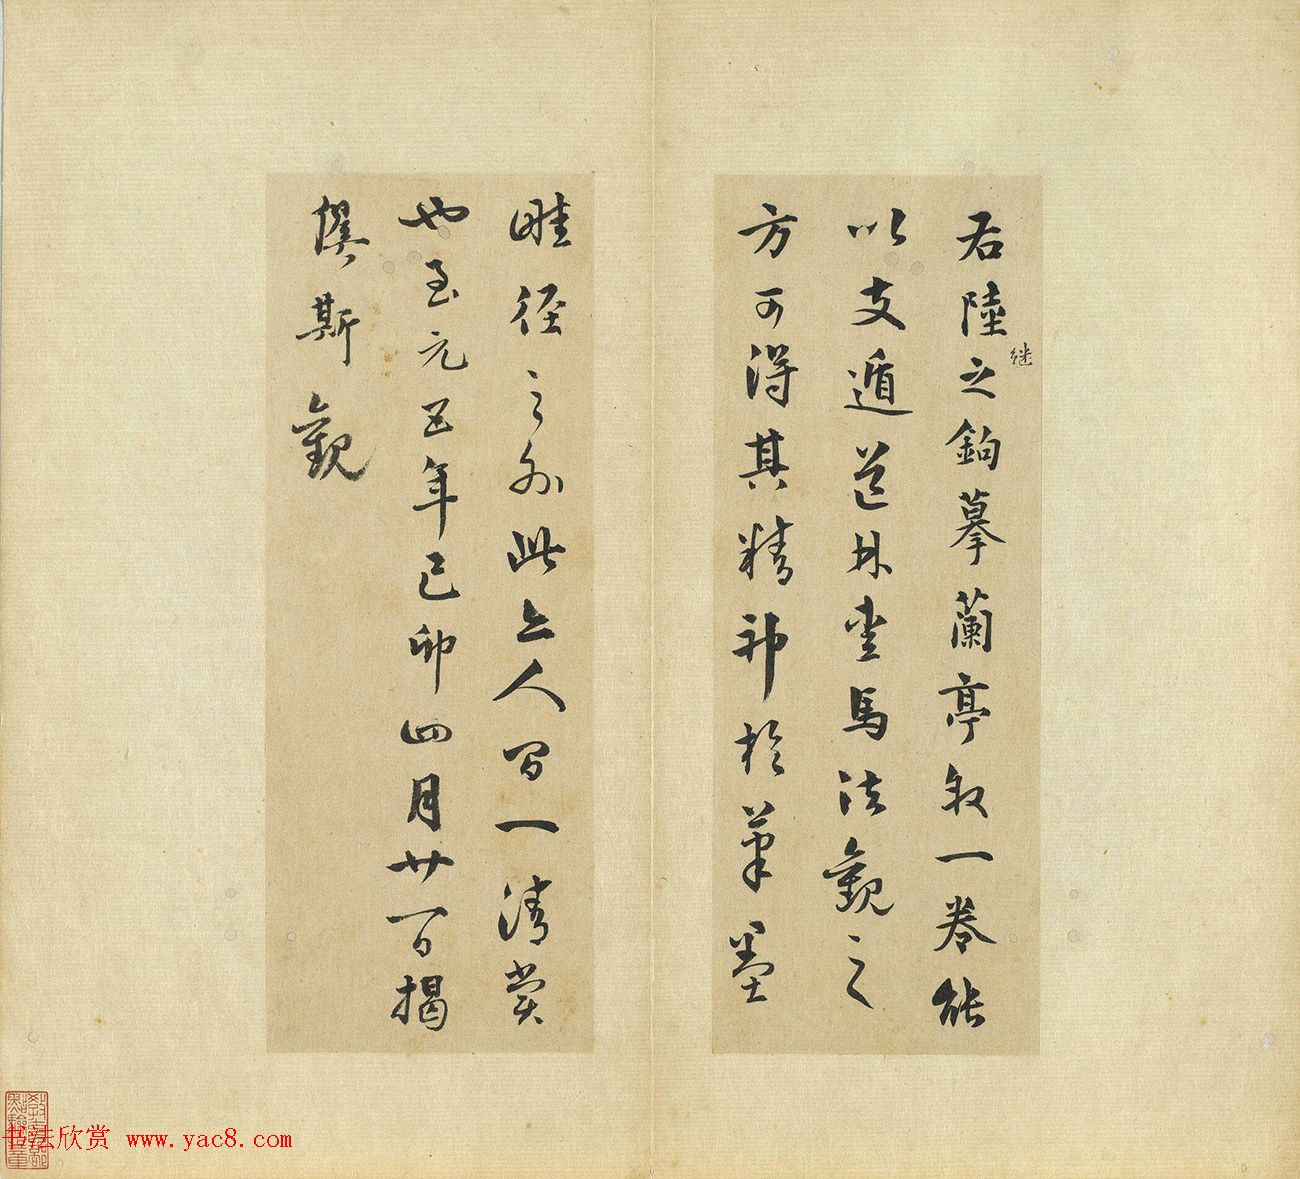 右陸之鉤摹蘭亭敘一卷能
继
以支遁道林愛馬法觀之
方可得其精神於筆墨
畦徑之外此亦人間一清賞
也至元五年己卯四月廿一日揭
傒斯觀
书法欣赏 www.yac8.com